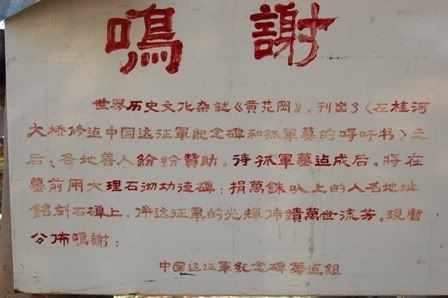 鳴謝
世界历史文化杂誌《黄花岡》，刋出了〈在桂河
大桥修造中国远征軍紀念碑和孤軍墓的呼吁书〉之
后，各地善人紛紛賛助。待孤軍墓造成后，将在
墓前用大理石沏功德碑；捐萬銖以上的人名地址
銘刻石碑上，伴远征軍的光輝佈績萬世流芳。現暫
公佈鳴謝：
中国远征軍紀念碑募造組